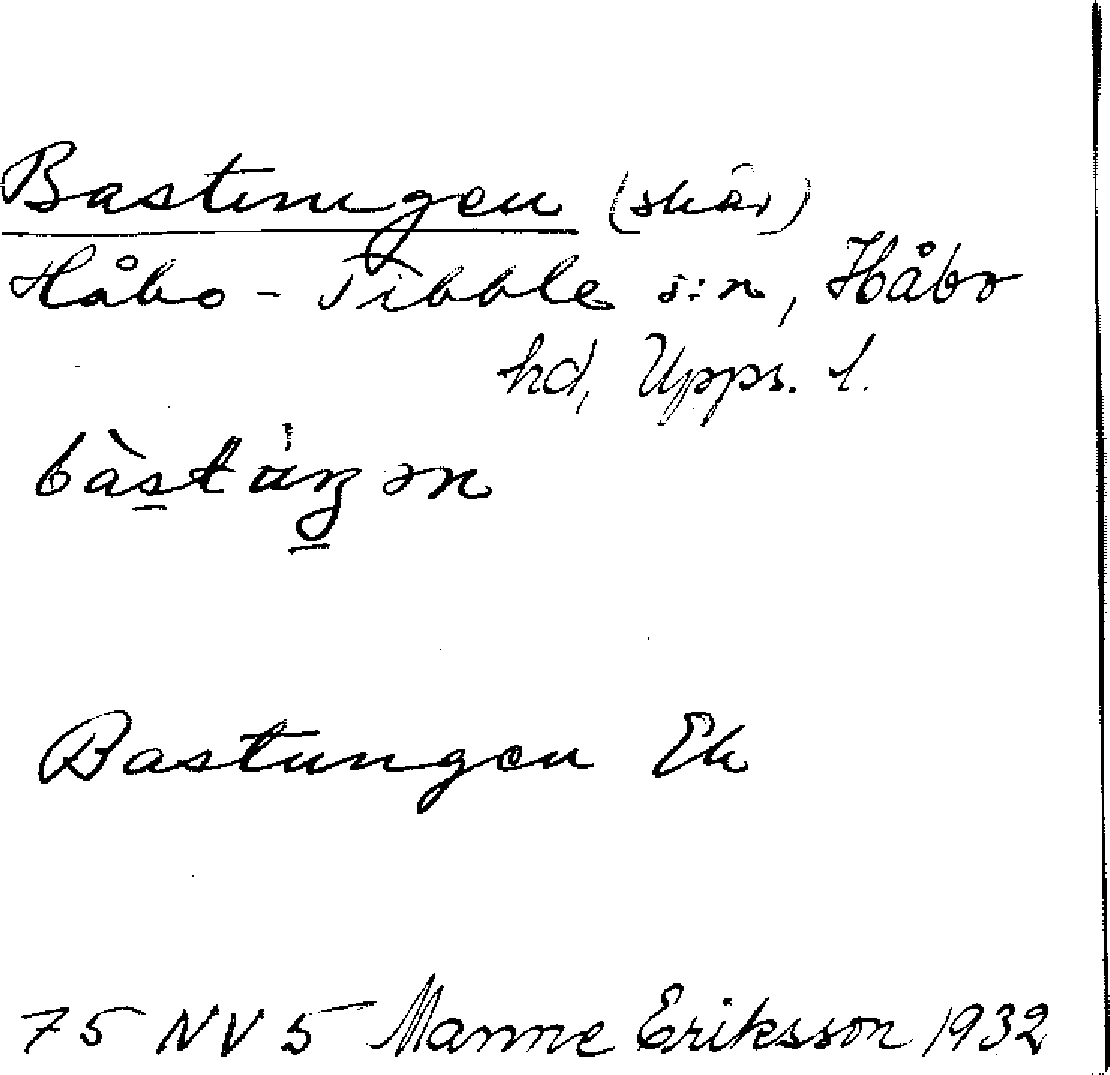 Bastungen (skär)
Håbo-Tibble s:n, Håbo
hd, Upps. l.
bàstùŋən
Bastungen Ek
75 NV 5 Manne Eriksson 1932